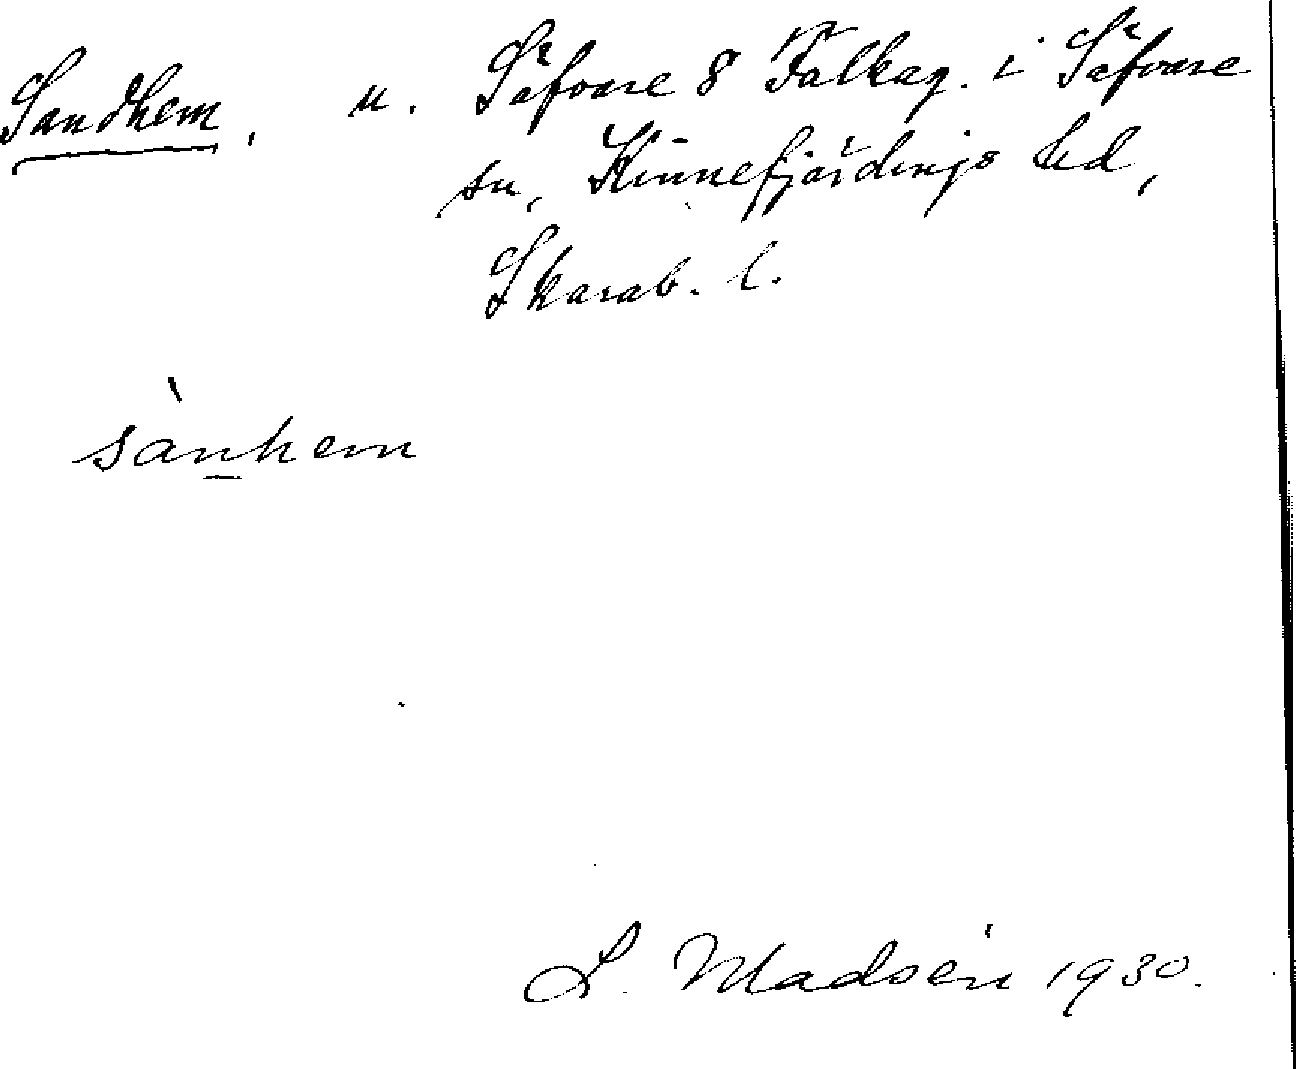 Sandhem, u. Säfvare 8 Falkag. i Säfvare
sn, Kinnefjärdings hd,
Skarab. l.
sànhem
L. Madsén 1930.